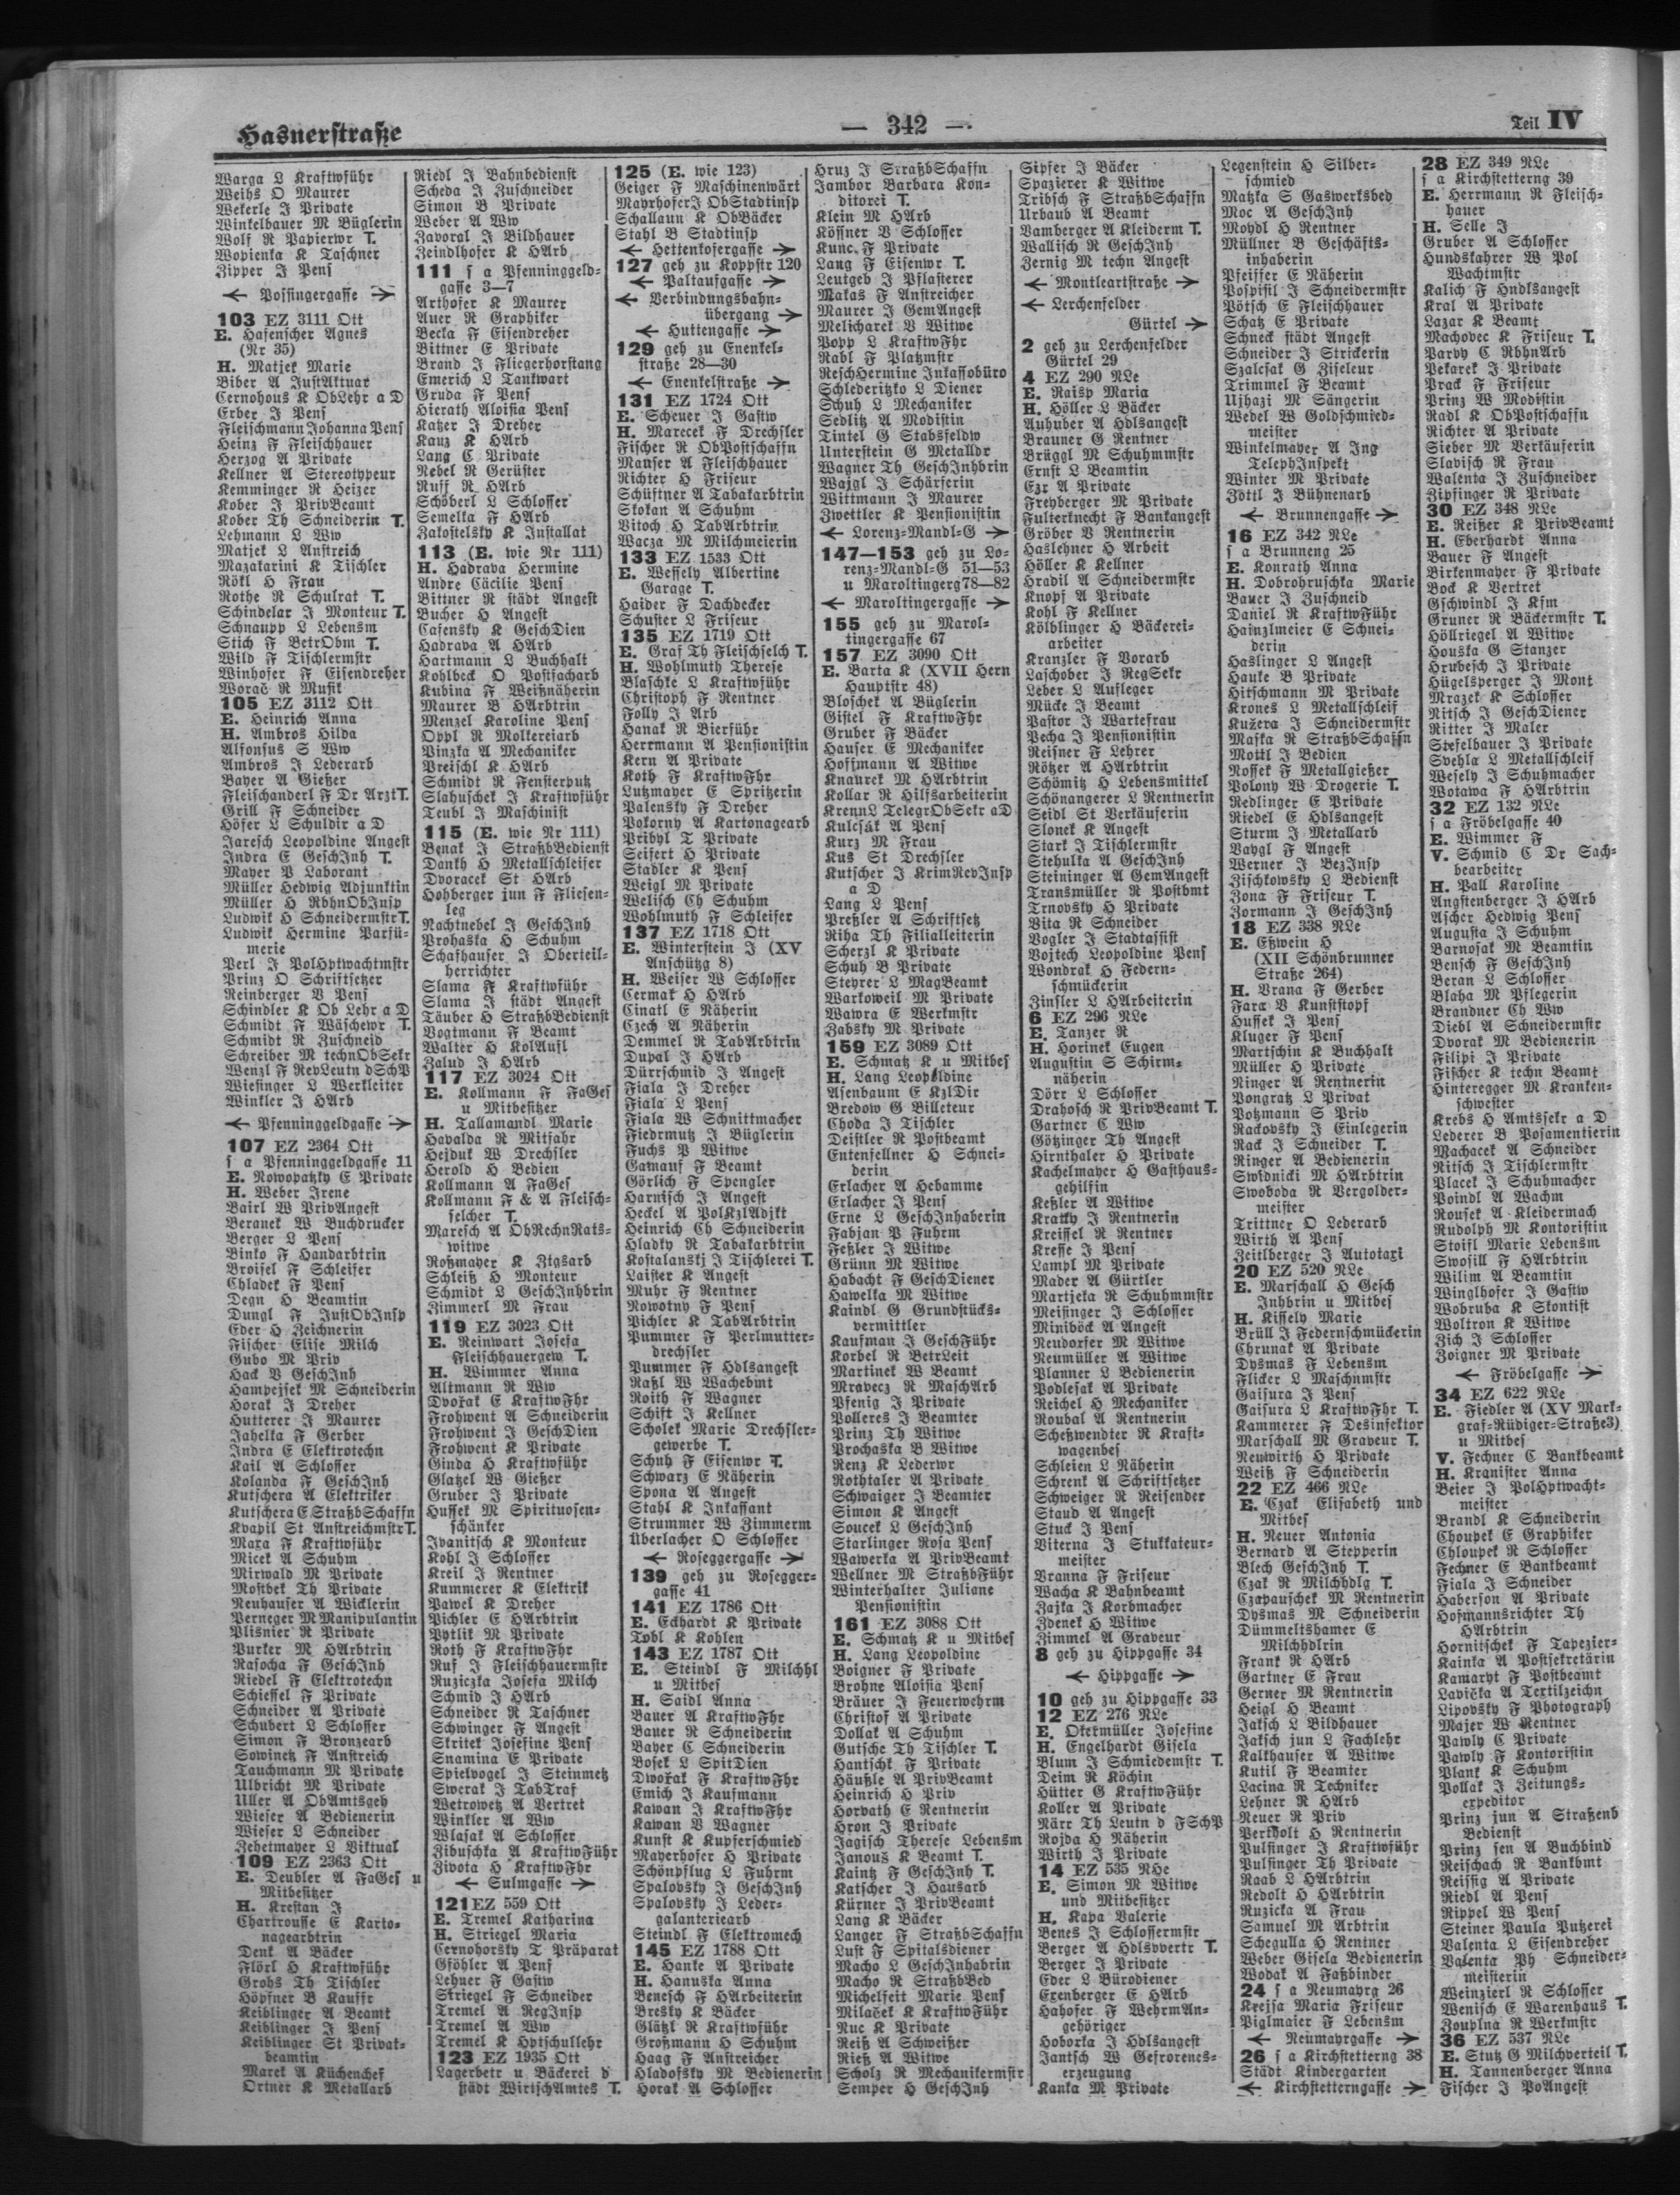 Hasnerstraße
— 342 —
Teil IV
Warga L Kraftwführ
Weihs O Maurer
Wekerle J Private
Winkelbauer M Büglerin
Wolf R Papierwr T.
Wopienka K Taschner
Zipper J Pens
← Possingergasse →
103 EZ 3111 Ott
E. Hafenscher Agnes
(Nr 35)
H. Matjek Marie
Biber A JustAktuar
Cernohous K ObLehr a D
Erber J Pens
Fleischmann Johanna Pens
Heinz F Fleischhauer
Herzog A Private
Kellner A Stereotypeur
Kemminger R Heizer
Kober J PrivBeamt
Kober Th Schneiderin T.
Lehmann L Ww
Matjek L Anstreich
Mazakarini K Tischler
Rökl H Frau
Rothe R Schulrat T.
Schindelar J Monteur T.
Schnaupp L Lebensm
Stich F BetrObm T.
Wild F Tischlermstr
Winhofer F Eisendreher
Worač R Musik
105 EZ 3112 Ott
E. Heinrich Anna
H. Ambros Hilda
Alfonsus S Ww
Ambros J Lederarb
Bayer A Gießer
Fleischanderl F Dr Arzt T.
Grill F Schneider
Höfer L Schuldir a D
Jaresch Leopoldine Angest
Jndra E GeschJnh T.
Mayer P Laborant
Müller Hedwig Adjunktin
Müller H RbhnObJnsp
Ludwik H Schneidermstr T.
Ludwik Hermine Parfü-
merie
Perl J PolHptwachtmstr
Prinz O Schriftsetzer
Reinberger V Pens
Schindler K Ob Lehr a D
Schmidt F Wäschewr T.
Schmidt R Zuschneid
Schreiber M technObSekr
Wenzl F RevLeutn dSchP
Wiesinger L Werkleiter
Winkler J HArb
← Pfenninggeldgasse →
107 EZ 2364 Ott
s a Pfenninggeldgasse 11
E. Nowopatzky E Private
H. Weber Jrene
Bairl W PrivAngest
Beranek W Buchdrucker
Berger L Pens
Binko F Handarbtrin
Broisel F Schleifer
Chladek F Pens
Degn H Beamtin
Dungl F JustObJnsp
Eder H Zeichnerin
Fischer Elise Milch
Gubo M Priv
Hack V GeschJnh
Hampejsek M Schneiderin
Horak J Dreher
Hutterer J Maurer
Jahelka F Gerber
Jndra E Elektrotechn
Kail A Schlosser
Kolanda F GeschJnh
Kutschera A Elektriker
Kutschera E StraßbSchaffn
Kvapil St Anstreichmstr T.
Mara F Kraftwführ
Micek A Schuhm
Mirwald M Private
Mostbek Th Private
Neuhauser A Wicklerin
Perneger M Manipulantin
Plisnier R Private
Purker M HArbtrin
Rasocha F GeschJnh
Riedel F Elektrotechn
Schieffel F Private
Schneider A Private
Schubert L Schlosser
Simon F Bronzearb
Sowinetz F Anstreich
Tauchmann M Private
Ulbricht M Private
Uller A ObAmtsgeh
Wieser A Bedienerin
Wieser L Schneider
Zehetmayer L Viktual
109 EZ 2363 Ott
E. Deubler A FaGes u
Mitbesitzer
H. Krestan J
Chartrousse E Karto-
nagearbtrin
Denk A Bäcker
Flörl H Kraftwführ
Grohs Th Tischler
Höpfner B Kauffr
Keiblinger A Beamt
Keiblinger J Pens
Keiblinger St Privat-
beamtin
Marek A Küchenchef
Ortner K Metallarb
Riedl J Bahnbedienst
Scheda J Zuschneider
Simon B Private
Weber A Ww
Zavoral J Bildhauer
Zeindlhofer K HArb
111 s a Pfenninggeld-
gasse 3—7
Arthofer K Maurer
Auer R Graphiker
Becka F Eisendreher
Bittner E Private
Brand J Fliegerhorstang
Emerich L Tankwart
Gruda F Pens
Hierath Aloisia Pens
Katzer J Dreher
Kauz K HArb
Lang C Private
Nebel R Gerüster
Ruff R HArb
Schöberl L Schlosser
Semelka F HArb
Zakostelsky K Justallat
113 (E. wie Nr 111)
H. Hadrava Hermine
Andre Cäcilie Pens
Bittner R städt Angest
Bucher H Angest
Casensky K GeschDien
Hadrava A HArb
Hartmann L Buchhalt
Kohlbeck O Postfacharb
Kubina F Weißnäherin
Maurer B HArbtrin
Menzel Karoline Pens
Oppl R Molkereiarb
Pinzka A Mechaniker
Preischl K HArb
Schmidt R Fensterputz
Slahuschek J Kraftwführ
Teubl J Maschinist
115 (E. wie Nr 111)
Benak J StraßbBedienst
Dankh H Metallschleifer
Dvoracek St HArb
Hohberger jun F Fliesen-
leg
Nachtnebel J GeschJnh
Prohaska H Schuhm
Schafhauser J Oberteil-
herrichter
Slama F Kraftwführ
Slama J städt Angest
Täuber H StraßbBedienst
Vogtmann F Beamt
Walter H KolAufl
Zalud J HArb
117 EZ 3024 Ott
E. Kollmann F FaGes
u Mitbesitzer
H. Tallamandl Marie
Havalda R Mitfahr
Hejduk W Drechsler
Herold H Bedien
Kollmann A FaGes
Kollmann F & A Fleisch-
selcher T.
Maresch A ObRechnRats-
witwe
Roßmayer K Zigsarb
Schleiß H Monteur
Schmidt L GeschJnhbrin
Zimmerl M Frau
119 EZ 3023 Ott
E. Reinwart Josefa
Fleischhauergew T.
H. Wimmer Anna
Altmann R Ww
Dvořak E KraftwFhr
Frohwent A Schneiderin
Frohwent J GeschDien
Frohwent K Private
Ginda H Kraftwführ
Glatzel W Gießer
Gruber J Private
Hussek M Spirituosen-
schänker
Jvanitsch K Monteur
Kohl J Schlosser
Kreil J Rentner
Kummerer K Elektrik
Pawel K Dreher
Pichler E HArbtrin
Pytlik M Private
Roth F KraftwFhr
Ruf J Fleischhauermstr
Ruziczka Josefa Milch
Schmid J HArb
Schneider R Taschner
Schwinger F Angest
Skritek Josefine Pens
Snamina E Private
Spielvogel J Steinmetz
Swerak J TabTraf
Wetrowetz A Vertret
Winkler A Ww
Wlasak A Schlosser
Zibuschka A KraftwFühr
Zivota H KraftwFhr
← Sulmgasse →
121 EZ 559 Ott
E. Tremel Katharina
H. Striegel Maria
Cernohorsky T Präparat
Gföhler A Pens
Lehner F Gastw
Striegel F Schneider
Tremel A RegJnsp
Tremel A Ww
Tremel K Hptschullehr
123 EZ 1935 Ott
Lagerbetr u Bäckerei d
städt WirtschAmtes T.
125 (E. wie 123)
Geiger F Maschinenwärt
Mayrhofer J ObStadtinsp
Schallaun K ObBäcker
Stahl B Stadtinsp
← Hettenkofergasse →
127 geh zu Koppstr 120
← Paltaufgasse →
← Verbindungsbahn-
übergang →
← Huttengasse →
129 geh zu Enenkel-
straße 28—30
← Enenkelstraße →
131 EZ 1724 Ott
E. Scheuer J Gastw
H. Marecek F Drechsler
Fischer R ObPostschaffn
Mauser A Fleischhauer
Richter H Friseur
Schüftner A Tabakarbtrin
Skokan A Schuhm
Vitoch H TabArbtrin
Wacza M Milchmeierin
133 EZ 1533 Ott
E. Wessely Albertine
Garage T.
Haider F Dachdecker
Schuster L Friseur
135 EZ 1719 Ott
E. Graf Th Fleischselch T.
H. Wohlmuth Therese
Blaschke L Kraftwführ
Christoph F Rentner
Folly J Arb
Hanak R Bierführ
Herrmann A Pensionistin
Kern A Private
Koth F KraftwFhr
Lutzmayer E Spritzerin
Palensky F Dreher
Pokorny A Kartonagearb
Pribyl T Private
Seifert H Private
Stadler K Pens
Weigl M Private
Welisch Ch Schuhm
Wohlmuth F Schleifer
137 EZ 1718 Ott
E. Winterstein J (XV
Anschützg 8)
H. Weiser W Schlosser
Cermak H HArb
Cinatl E Näherin
Czech A Näherin
Demmel R TabArbtrin
Dupal J HArb
Dürrschmid J Angest
Fiala J Dreher
Fiala L Pens
Fiala W Schnittmacher
Fiedrmutz J Büglerin
Fuchs P Witwe
Gamauf F Beamt
Görlich F Spengler
Harnisch J Angest
Heckel A PolKzlAdjkt
Heinrich Ch Schneiderin
Hladky R Tabakarbtrin
Kostalanskj J Tischlerei T.
Laister K Angest
Muhr F Rentner
Nowotny F Pens
Pichler K TabArbtrin
Pummer F Perlmutter-
drechsler
Pummer F Hdlsangest
Raßl W Wachebmt
Roith F Wagner
Schift J Kellner
Scholek Marie Drechsler-
gewerbe T.
Schuh F Eisenwr T.
Schwarz E Näherin
Spona A Angest
Stahl K Jnkassant
Strummer W Zimmerm
Überlacher O Schlosser
← Roseggergasse →
139 geh zu Rosegger-
gasse 41
141 EZ 1786 Ott
E. Eckhardt K Private
Tobl K Kohlen
143 EZ 1787 Ott
E. Steindl F Milchhl
u Mitbes
H. Saidl Anna
Bauer A KraftwFhr
Bauer R Schneiderin
Bayer C Schneiderin
Bosek L SpitDien
Dwořak F KraftwFhr
Emich J Kaufmann
Kawan J KraftwFhr
Kawan V Wagner
Kunft K Kupferschmied
Mayerhofer H Private
Schönpflug L Fuhrm
Spalovsky J GeschJnh
Spalovsky J Leder-
galanteriearb
Steindl F Elektromech
145 EZ 1788 Ott
E. Hanke A Private
H. Hanuska Anna
Benesch F HArbeiterin
Bresky K Bäcker
Glötzl R Kraftwführ
Großmann H Schuhm
Haag F Anstreicher
Hladofsky M Bedienerin
Horak A Schlosser
Hruz J StraßbSchaffn
Jambor Barbara Kon-
ditorei T.
Klein M HArb
Köffner V Schlosser
Kunc F Private
Lang F Eisenwr T.
Leutgeb J Pflasterer
Makas F Anstreicher
Maurer J GemAngest
Melicharek V Witwe
Popp L KraftwFhr
Rabl F Platzmstr
ReschHermine Jnkassobüro
Schlederitzko L Diener
Schuh L Mechaniker
Sedlitz A Modistin
Tintel G Stabsfeldw
Unterstein G Metalldr
Wagner Th GeschJnhbrin
Wajgl J Schärferin
Wittmann J Maurer
Zwettler K Pensionistin
← Lorenz-Mandl-G →
147—153 geh zu Lo-
renz-Mandl-G 51—53
u Maroltingerg 78—82
← Maroltingergasse →
155 geh zu Marol-
tingergasse 67
157 EZ 3090 Ott
E. Barta K (XVII Hern
Hauptstr 48)
Bloschek A Büglerin
Gistel F KraftwFhr
Gruber F Bäcker
Hauser E Mechaniker
Hoffmann A Witwe
Knaurek M HArbtrin
Kollar R Hilfsarbeiterin
KrennL TelegrObSekr aD
Kulcsák A Pens
Kurz M Frau
Kus St Drechsler
Kutscher J KrimRevJnsp
a D
Lang L Pens
Preßler A Schriftsetz
Riha Th Filialleiterin
Scherzl K Private
Schuh B Private
Steyrer L MagBeamt
Warkoweil M Private
Wawra E Werkmstr
Zabsky M Private
159 EZ 3089 Ott
E. Schmatz K u Mitbes
H. Lang Leopoldine
Asenbaum E KzlDir
Bredow G Billeteur
Choda J Tischler
Deistler R Postbeamt
Entenfellner H Schnei-
derin
Erlacher A Hebamme
Erlacher J Pens
Erne L GeschJnhaberin
Fabjan P Fuhrm
Feßler J Witwe
Grünn M Witwe
Habacht F GeschDiener
Hawelka M Witwe
Kaindl G Grundstücks-
vermittler
Kaufman J GeschFühr
Korbel R BetrLeit
Martinek W Beamt
Mravecz R MaschArb
Pfenig J Private
Polleres J Beamter
Prinz Th Witwe
Prochaska B Witwe
Renz K Lederwr
Rothtaler A Private
Schwaiger J Beamter
Simon K Angest
Soucek L GeschJnh
Starlinger Rosa Pens
Wawerka A PrivBeamt
Wellner M StraßbFühr
Winterhalter Juliane
Pensionistin
161 EZ 3088 Ott
E. Schmatz K u Mitbes
H. Lang Leopoldine
Boigner F Private
Brohne Aloisia Pens
Bräuer J Feuerwehrm
Christof A Private
Dollak A Schuhm
Gutsche Th Tischler T.
Hantschk F Private
Häußle A PrivBeamt
Heinrich H Priv
Horvath E Rentnerin
Hron J Private
Jagisch Therese Lebensm
Janous K Beamt T.
Kaintz F GeschJnh T.
Katscher J Hausarb
Kürner J PrivBeamt
Lang K Bäcker
Langer F StraßbSchaffn
Lust F Spitalsdiener
Macho L GeschJnhabrin
Macho R StraßbBed
Michelfeit Marie Pens
Milaček K KraftwFühr
Ruc K Private
Reiß A Schweißer
Rieß A Witwe
Scholz R Mechanikermstr
Semper H GeschJnh
Sipfer J Bäcker
Spazierer K Witwe
Tribsch F StraßbSchaffn
Urbaub A Beamt
Vamberger A Kleiderm T.
Wallisch R GeschJnh
Zernig M techn Angest
← Montleartstraße →
← Lerchenfelder
Gürtel →
2 geh zu Lerchenfelder
Gürtel 29
4 EZ 290 NLe
E. Raisp Maria
H. Höller L Bäcker
Auhuber A Hdlsangest
Brauner G Rentner
Brüggl M Schuhmmstr
Ernst L Beamtin
Ezr A Private
Freyberger M Private
Fulterknecht F Bankangest
Gröber V Rentnerin
Haslehner H Arbeit
Höller K Kellner
Hradil A Schneidermstr
Knopf A Private
Kohl F Kellner
Kölblinger H Bäckerei-
arbeiter
Kranzler F Vorarb
Laschober J RegSekr
Leber L Aufleger
Mücke J Beamt
Pastor J Wartefrau
Pecha J Pensionistin
Reisner F Lehrer
Rötzer A HArbtrin
Schömitz H Lebensmittel
Schönangerer L Rentnerin
Seidl St Verkäuferin
Slonek K Angest
Stark J Tischlermstr
Stehulka A GeschJnh
Steininger A GemAngest
Transmüller R Postbmt
Trnovsky H Private
Vita R Schneider
Vogler J Stadtassist
Vojtech Leopoldine Pens
Wondrak H Federn-
schmückerin
Zinsler L HArbeiterin
6 EZ 296 NLe
E. Tanzer R
H. Horinek Eugen
Augustin S Schirm-
näherin
Dörr L Schlosser
Drahosch R PrivBeamt T.
Gartner C Ww
Götzinger Th Angest
Hirnthaler H Private
Kachelmayer H Gasthaus-
gehilfin
Keßler A Witwe
Kratky J Rentnerin
Kreissel R Rentner
Kresse J Pens
Lampl M Private
Mader A Gürtler
Martjeka R Schuhmmstr
Meisinger J Schlosser
Miniböck A Angest
Neudorfer M Witwe
Neumüller A Witwe
Planner L Bedienerin
Podlesak A Private
Reichel H Mechaniker
Roubal A Rentnerin
Scheßwendter R Kraft-
wagenbes
Schleien L Näherin
Schrenk A Schriftsetzer
Schweiger R Reisender
Staud A Angest
Stuck J Pens
Viterna J Stukkateur-
meister
Vranna F Friseur
Wacha K Bahnbeamt
Zajka J Korbmacher
Zdenek H Witwe
Zimmel A Graveur
8 geh zu Hippgasse 34
← Hippgasse →
10 geh zu Hippgasse 33
12 EZ 276 NLe
E. Oktermüller Josefine
H. Engelhardt Gisela
Blum J Schmiedemstr T.
Deim R Köchin
Hütter G KraftwFühr
Koller A Private
Närr Th Leutn d FSchP
Rojda H Näherin
Wirth J Private
14 EZ 535 NHe
E. Simon M Witwe
und Mitbesitzer
H. Kapa Valerie
Benes J Schlossermstr
Berger A Hdlsvertr T.
Berger J Private
Eder L Bürodiener
Exenberger E HArb
Hahofer F WehrmAn-
gehöriger
Hoborka J Hdlsangest
Jantsch W Gefrorenes-
erzeugung
Kanka M Private
Legenstein H Silber-
schmied
Matzka S Gaswerksbed
Moc A GeschJnh
Moydl H Rentner
Müllner B Geschäfts-
inhaberin
Pfeiffer E Näherin
Pospisil J Schneidermstr
Pötsch E Fleischhauer
Schatz E Private
Schneck städt Angest
Schneider J Strickerin
Szalcsak G Ziseleur
Trimmel F Beamt
Ujhazi M Sängerin
Wedel W Goldschmied-
meister
Winkelmayer A Jng
TelephJnspekt
Winter M Private
Zöttl J Bühnenarb
← Brunnengasse →
16 EZ 342 NLe
s a Brunneng 25
E. Konrath Anna
H. Dobrohruschka Marie
Bauer J Zuschneid
Daniel R KraftwFühr
Hainzlmeier E Schnei-
derin
Haslinger L Angest
Hauke B Private
Hitschmann M Private
Krones L Metallschleif
Kužera J Schneidermstr
Maska R StraßbSchaffn
Mottl J Bedien
Nossek F Metallgießer
Polony W Drogerie T.
Redlinger E Private
Riedel E Hdlsangest
Sturm J Metallarb
Vaygl F Angest
Werner J BezJnsp
Zischkowsky L Bedienst
Zona F Friseur T.
Zormann J GeschJnh
18 EZ 338 NLe
E. Eßwein H
(XII Schönbrunner
Straße 264)
H. Vrana F Gerber
Fara V Kunststopf
Hussek J Pens
Kluger F Pens
Martschin K Buchhalt
Müller H Private
Ninger A Rentnerin
Pongratz L Privat
Potzmann S Priv
Rackovsky J Einlegerin
Rack J Schneider T.
Ringer A Bedienerin
Swidnicki M HArbtrin
Swoboda R Vergolder-
meister
Trittner O Lederarb
Wirth A Pens
Zeitlberger J Autotaxi
20 EZ 520 NLe
E. Marschall H Gesch
Jnhbrin u Mitbes
H. Kissely Marie
Brüll J Federnschmückerin
Chrunak A Private
Dysmas F Lebensm
Flicker L Maschnmstr
Gaisura J Pens
Gaisura L KraftwFhr T.
Kammerer F Desinfektor
Marschall M Graveur T.
Neuwirth H Private
Weiß F Schneiderin
22 EZ 466 NLe
E. Czak Elisabeth und
Mitbes
H. Neuer Antonia
Bernard A Stepperin
Blech GeschJnh T.
Czak R Milchhdlg T.
Czapauschek M Rentnerin
Dysmas M Schneiderin
Dümmeltshamer E
Milchhdlrin
Frank R HArb
Gartner E Frau
Gerner M Rentnerin
Heigl H Beamt
Jaksch L Bildhauer
Jaksch jun L Fachlehr
Kalkhauser A Witwe
Kutil F Beamter
Lacina R Techniker
Lehner R HArb
Neuer R Priv
Pertholt H Rentnerin
Pulsinger J Kraftwführ
Pulsinger Th Private
Raab L HArbtrin
Redolt H HArbtrin
Ruzicka A Frau
Samuel M Arbtrin
Schegulla H Rentner
Weber Gisela Bedienerin
Wodak A Faßbinder
24 s a Neumayrg 26
Krejsa Maria Friseur
Piglmaier F Lebensm
← Neumayrgasse →
26 s a Kirchstetterng 38
Städt Kindergarten
← Kirchstetterngasse →
28 EZ 349 NLe
s a Kirchstetterng 39
E. Herrmann R Fleisch-
hauer
H. Selle J
Gruber A Schlosser
Hundskahrer W Pol
Wachtmstr
Kalich F Hndlsangest
Kral A Private
Lazar K Beamt
Machovec K Friseur T.
Parvy C RbhnArb
Pekarek J Private
Prack F Friseur
Prinz W Modistin
Radl K ObPostschaffn
Richter A Private
Sieber M Verkäuferin
Slavisch R Frau
Walenta J Zuschneider
Zipfinger R Private
30 EZ 348 NLe
E. Reißer K PrivBeamt
H. Eberhardt Anna
Bauer F Angest
Birkenmayer F Private
Bock K Vertret
Gschwindl J Kfm
Gruner R Bäckermstr T.
Höllriegel A Witwe
Houska G Stanzer
Hrubesch J Private
Hügelsperger J Mont
Mrazek K Schlosser
Nitsch J GeschDiener
Ritter J Maler
Stefelbauer J Private
Svehla L Metallschleif
Wesely J Schuhmacher
Wotawa F HArbtrin
32 EZ 132 NLe
s a Fröbelgasse 40
E. Wimmer F
V. Schmid C Dr Sach-
bearbeiter
H. Pall Karoline
Angstenberger J HArb
Ascher Hedwig Pens
Augusta J Schuhm
Barnosak M Beamtin
Bensch F GeschJnh
Beran L Schlosser
Blaha M Pflegerin
Brandner Ch Ww
Diebl A Schneidermstr
Dvorak M Bedienerin
Filipi J Private
Fischer K techn Beamt
Hinteregger M Kranken-
schwester
Krebs H Amtssekr a D
Lederer B Posamentierin
Machacek A Schneider
Nitsch J Tischlermstr
Placek J Schuhmacher
Poindl A Wachm
Rousek A Kleidermach
Rudolph M Kontoristin
Stoisl Marie Lebensm
Swosill F HArbtrin
Wilim A Beamtin
Winglhofer J Gastw
Wobruba K Skontist
Woltron K Witwe
Zich J Schlosser
Zoigner M Private
← Fröbelgasse →
34 EZ 622 NLe
E. Fiedler A (XV Mark-
graf-Rüdiger-Straße3)
u Mitbes
V. Fechner C Bankbeamt
H. Kranister Anna
Beier J PolHptwacht-
meister
Brandl K Schneiderin
Choupek E Graphiker
Chloupek R Schlosser
Fechner E Bankbeamt
Fiala J Schneider
Haberson A Private
Hofmannsrichter Th
HArbtrin
Hornitschek F Tapezier-
Kainka A Postsekretärin
Kamaryt F Postbeamt
Lavička A Textilzeichn
Lipovsky F Photograph
Majer W Rentner
Pawly C Private
Pawly F Kontoristin
Plank K Schuhm
Pollak J Zeitungs-
expeditor
Prinz jun A Straßenb
Bedienst
Prinz sen A Buchbind
Reischach R Bankbmt
Reissig A Private
Riedl A Pens
Rippel W Pens
Steiner Paula Putzerei
Valenta L Eisendreher
Valenta Ph Schneider-
meisterin
Weinzierl R Schlosser
Wenisch E Warenhaus T.
Zouplna R Werkmstr
36 EZ 537 NLe
E. Stutz G Milchverteil T.
H. Tannenberger Anna
Fischer J PoAngest